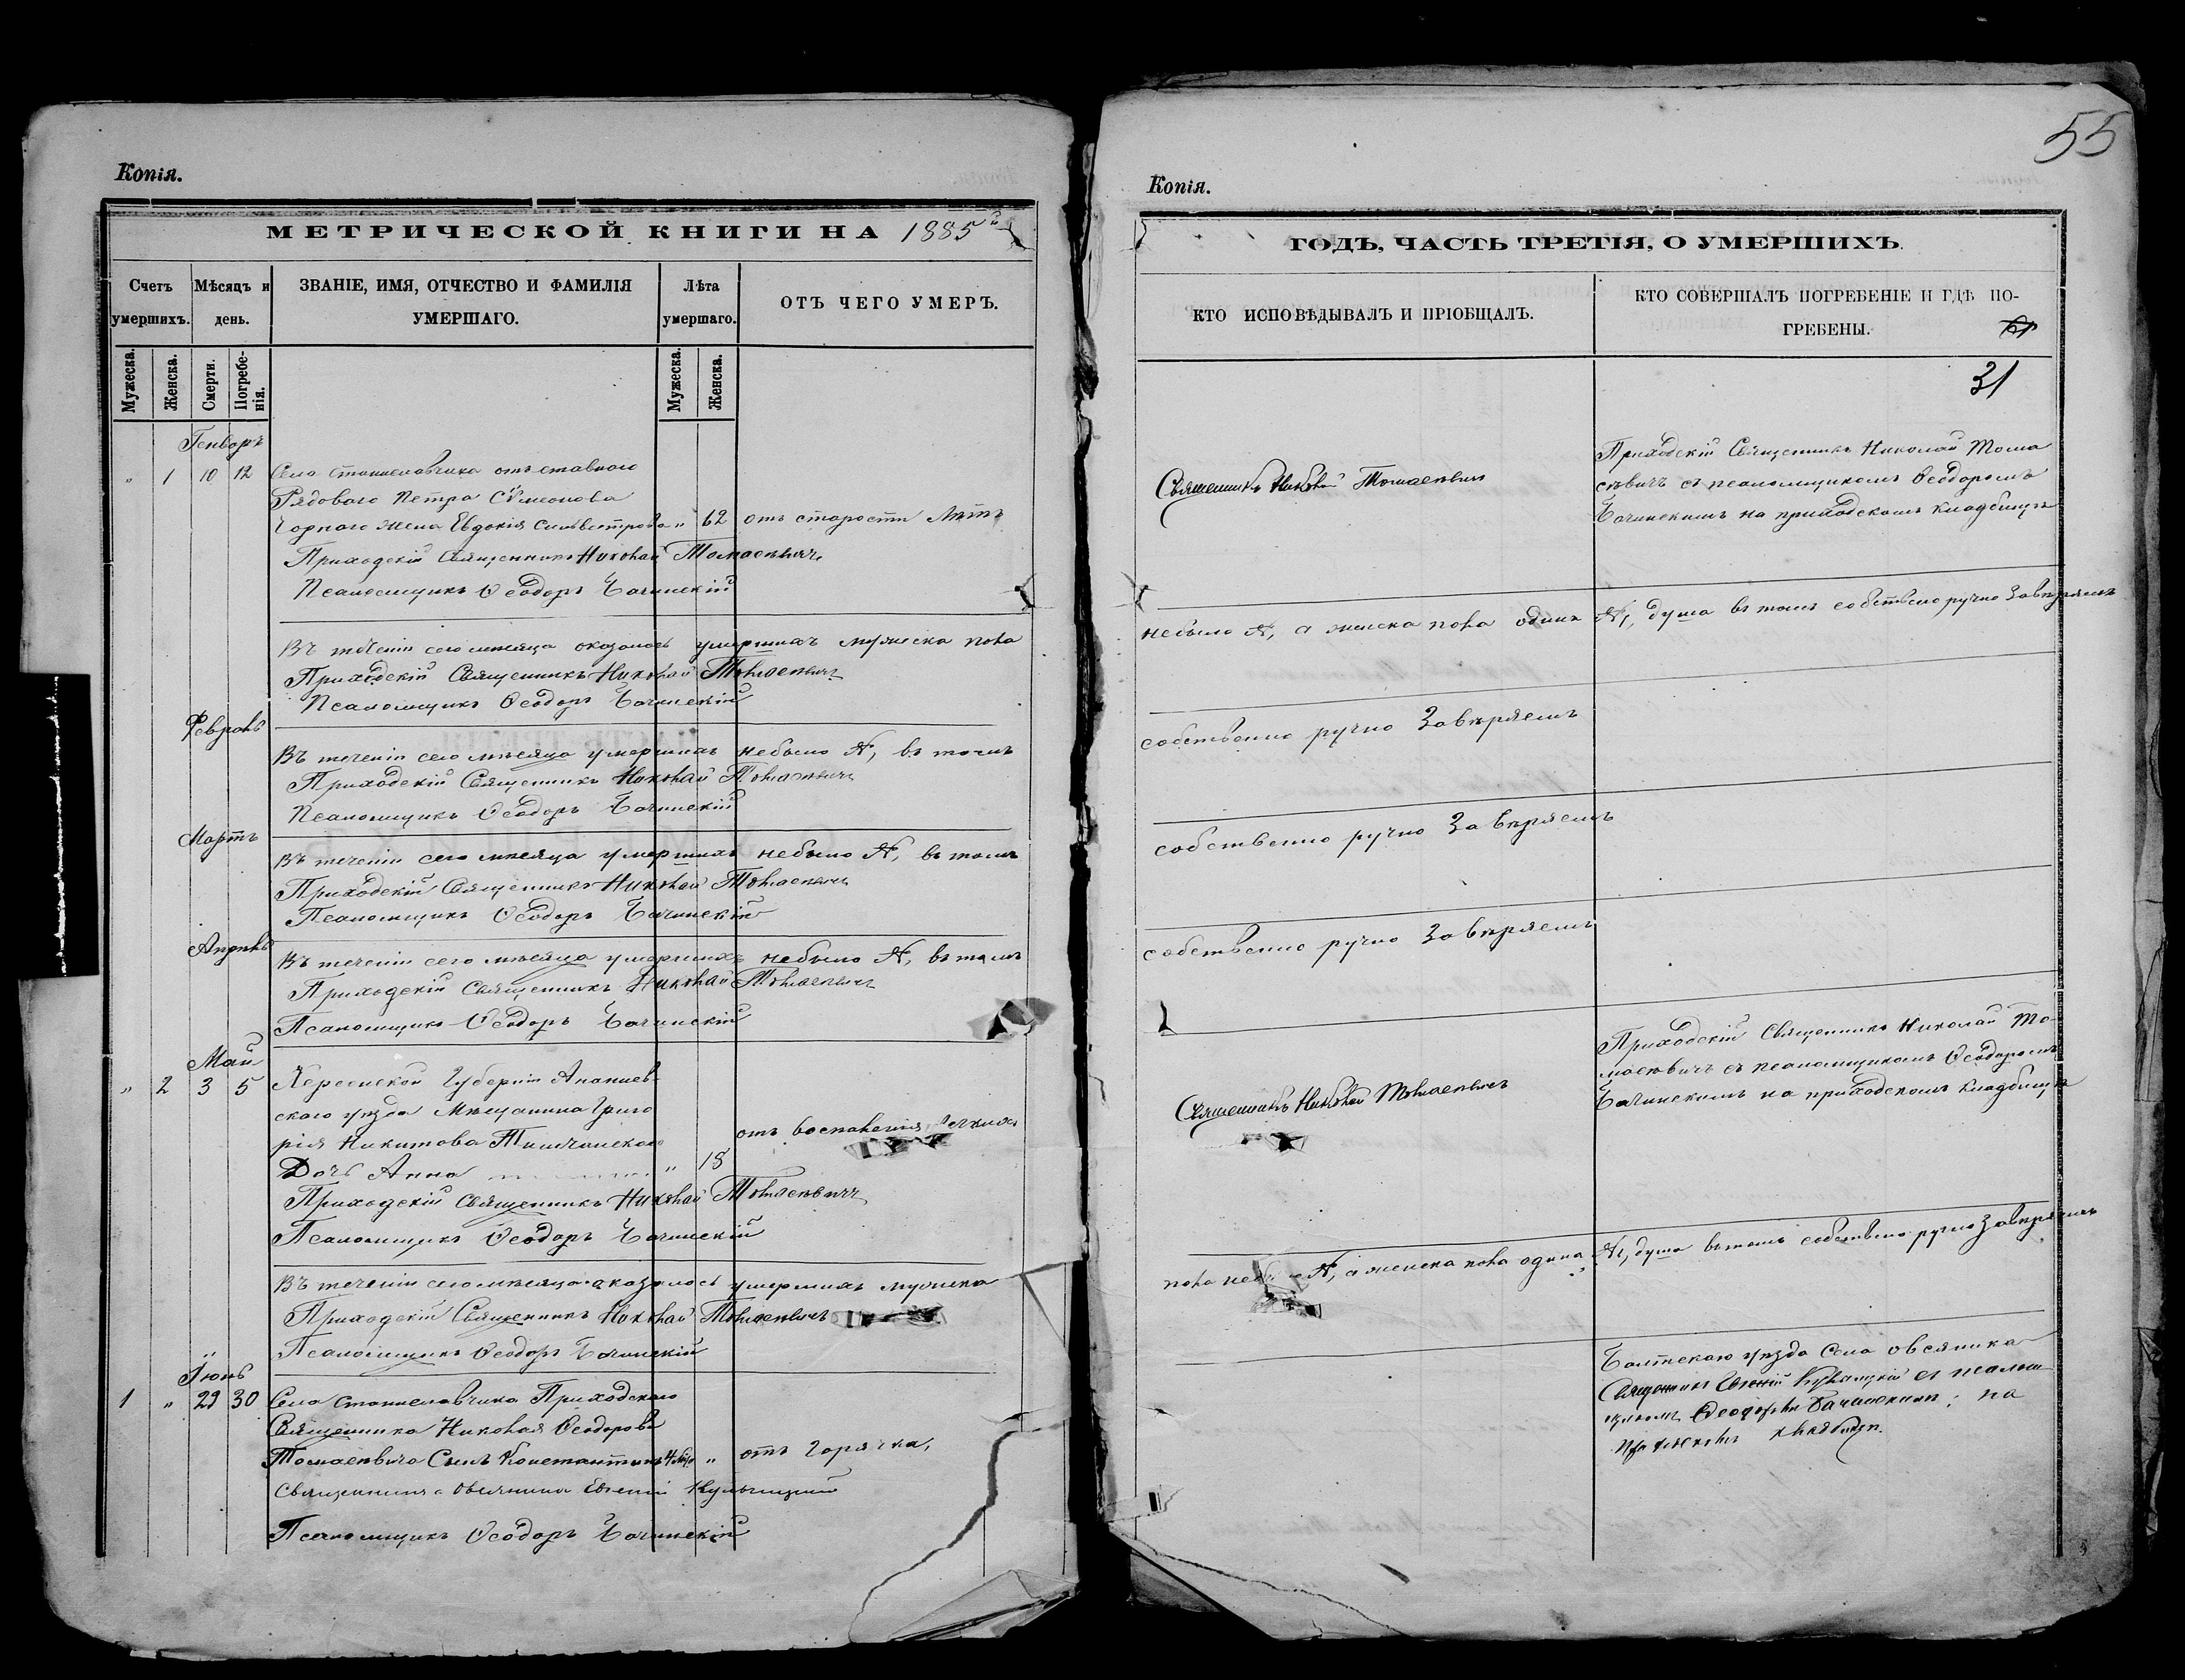 Копія.
МЕТРИЧЕСКОЙ КНИГИ НА 1885й
Счетъ умершихъ.
Мѣсяцъ и день.
ЗВАНІЕ, ИМЯ, ОТЧЕСТВО И ФАМИЛІЯ УМЕРШАГО.
Лѣта умершаго.
ОТЪ ЧЕГО УМЕРЪ.
Мужеска.
Женска.
Смерти.
Погребе-нія.
Мужеска.
Женска.
Генварь
" 1 10 12 Села Станиславчика отъ ставного
Рядового Петра Сѵмеонова
Чорного жена Евдокія Сильвестрова " 62 отъ старости Лѣтъ
Приходскій Священникъ Николай Томасевичъ
Псаломщикъ Ѳеодоръ Бачинскій
Въ теченіи сего мѣсяца оказалось умершихъ мужеска пола
Приходскій Священникъ Николай Томасевичъ
Псаломщикъ Ѳеодоръ Бачинскій
Февраль
Въ теченіи сего мѣсяца умершихъ небыло №, въ томъ
Приходскій Священникъ Николай Томасевичъ
Псаломщикъ Ѳеодоръ Бачинскій
Мартъ
Въ теченіи сего мѣсяца умершихъ небыло №, въ томъ
Приходскій Священникъ Николай Томасевичъ
Псаломщикъ Ѳеодоръ Бачинскій
Апрѣль
Въ теченіи сего мѣсяца умершихъ небыло №, въ томъ
Приходскій Священникъ Николай Томасевичъ
Псаломщикъ Ѳеодоръ Бачинскій
Май
" 2 3 5 Херсонской Губерніи Ананьев
ского уѣзда Мѣщанина Григо
рія Никитова
отъ воспаленія
Дочь Анна " 18
Приходскій Священникъ Николай Томасевичъ
Псаломщикъ Ѳеодоръ Бачинскій
Въ теченіи сего мѣсяца оказалось умершихъ мужеска
Приходскій Священникъ Николай Томасевичъ
Псаломщикъ Ѳеодоръ Бачинскій
Іюнь
1 " 29 30 Села Станиславчика Приходского
Священника Николая Ѳеодорова
Томасевича Сынъ Константинъ 4 " отъ Горячка,
Священникъ с Овсяника Евгеній Кульчицкій
Псаломщикъ Ѳеодоръ Бачинскій
55
Копія.
ГОДЪ, ЧАСТЬ ТРЕТІЯ, О УМЕРШИХЪ.
КТО ИСПОВѢДЫВАЛЪ И ПРІОБЩАЛЪ.
КТО СОВЕРШАЛЪ ПОГРЕБЕНІЕ И ГДѢ ПО-
ГРЕБЕНЫ.
31
Священникъ Николай Томасевичъ
Приходскій Священникъ Николай Тома
севичъ съ псаломщикомъ Ѳеодоромъ
Бачинскимъ на приходскомъ кладбищѣ
небыло №, а женска пола одина №1, душа въ томъ собственоручно Завѣряемъ
собственно ручно Завѣряемъ
собственно ручно Завѣряемъ
собственно ручно Завѣряемъ
Священникъ Николай Томасевичъ
Приходскій Священникъ Николай То-
масевичъ съ псаломщикомъ Ѳеодоромъ
Бачинскимъ на приходскомъ кладбищѣ
пола небыло №, а женска пола одина №1, душа въ томъ собствено ручно Завѣряемъ
Балтскаго уѣзда Села Овсяника
Священникъ Евгеній Кульчицкій съ псалом
щикомъ Ѳеодоромъ Бачинскимъ; на
приходскомъ кладбищѣ.